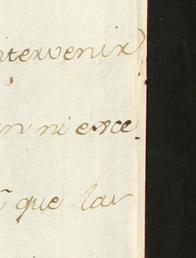 ntervenir
an ni exce
que las